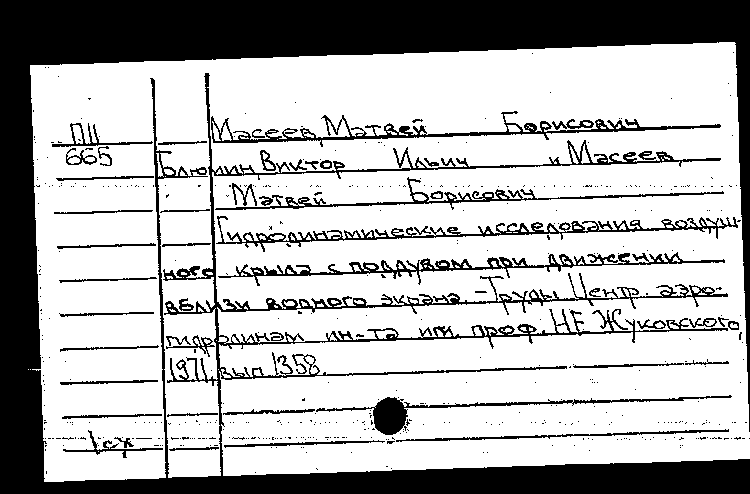 П11 Масеев, Матвей Борисович
665 Блюмин, Виктор Ильич и Масеев,
Матвей Борисович
Гидродинамические исследования воздуш-
ного крыла с поддувом при движении
вблизи водного экрана. - Труды Центр. аэро-
гидродинам ин-та им. проф. Н Е Жуковского,
1971, вып 1358.